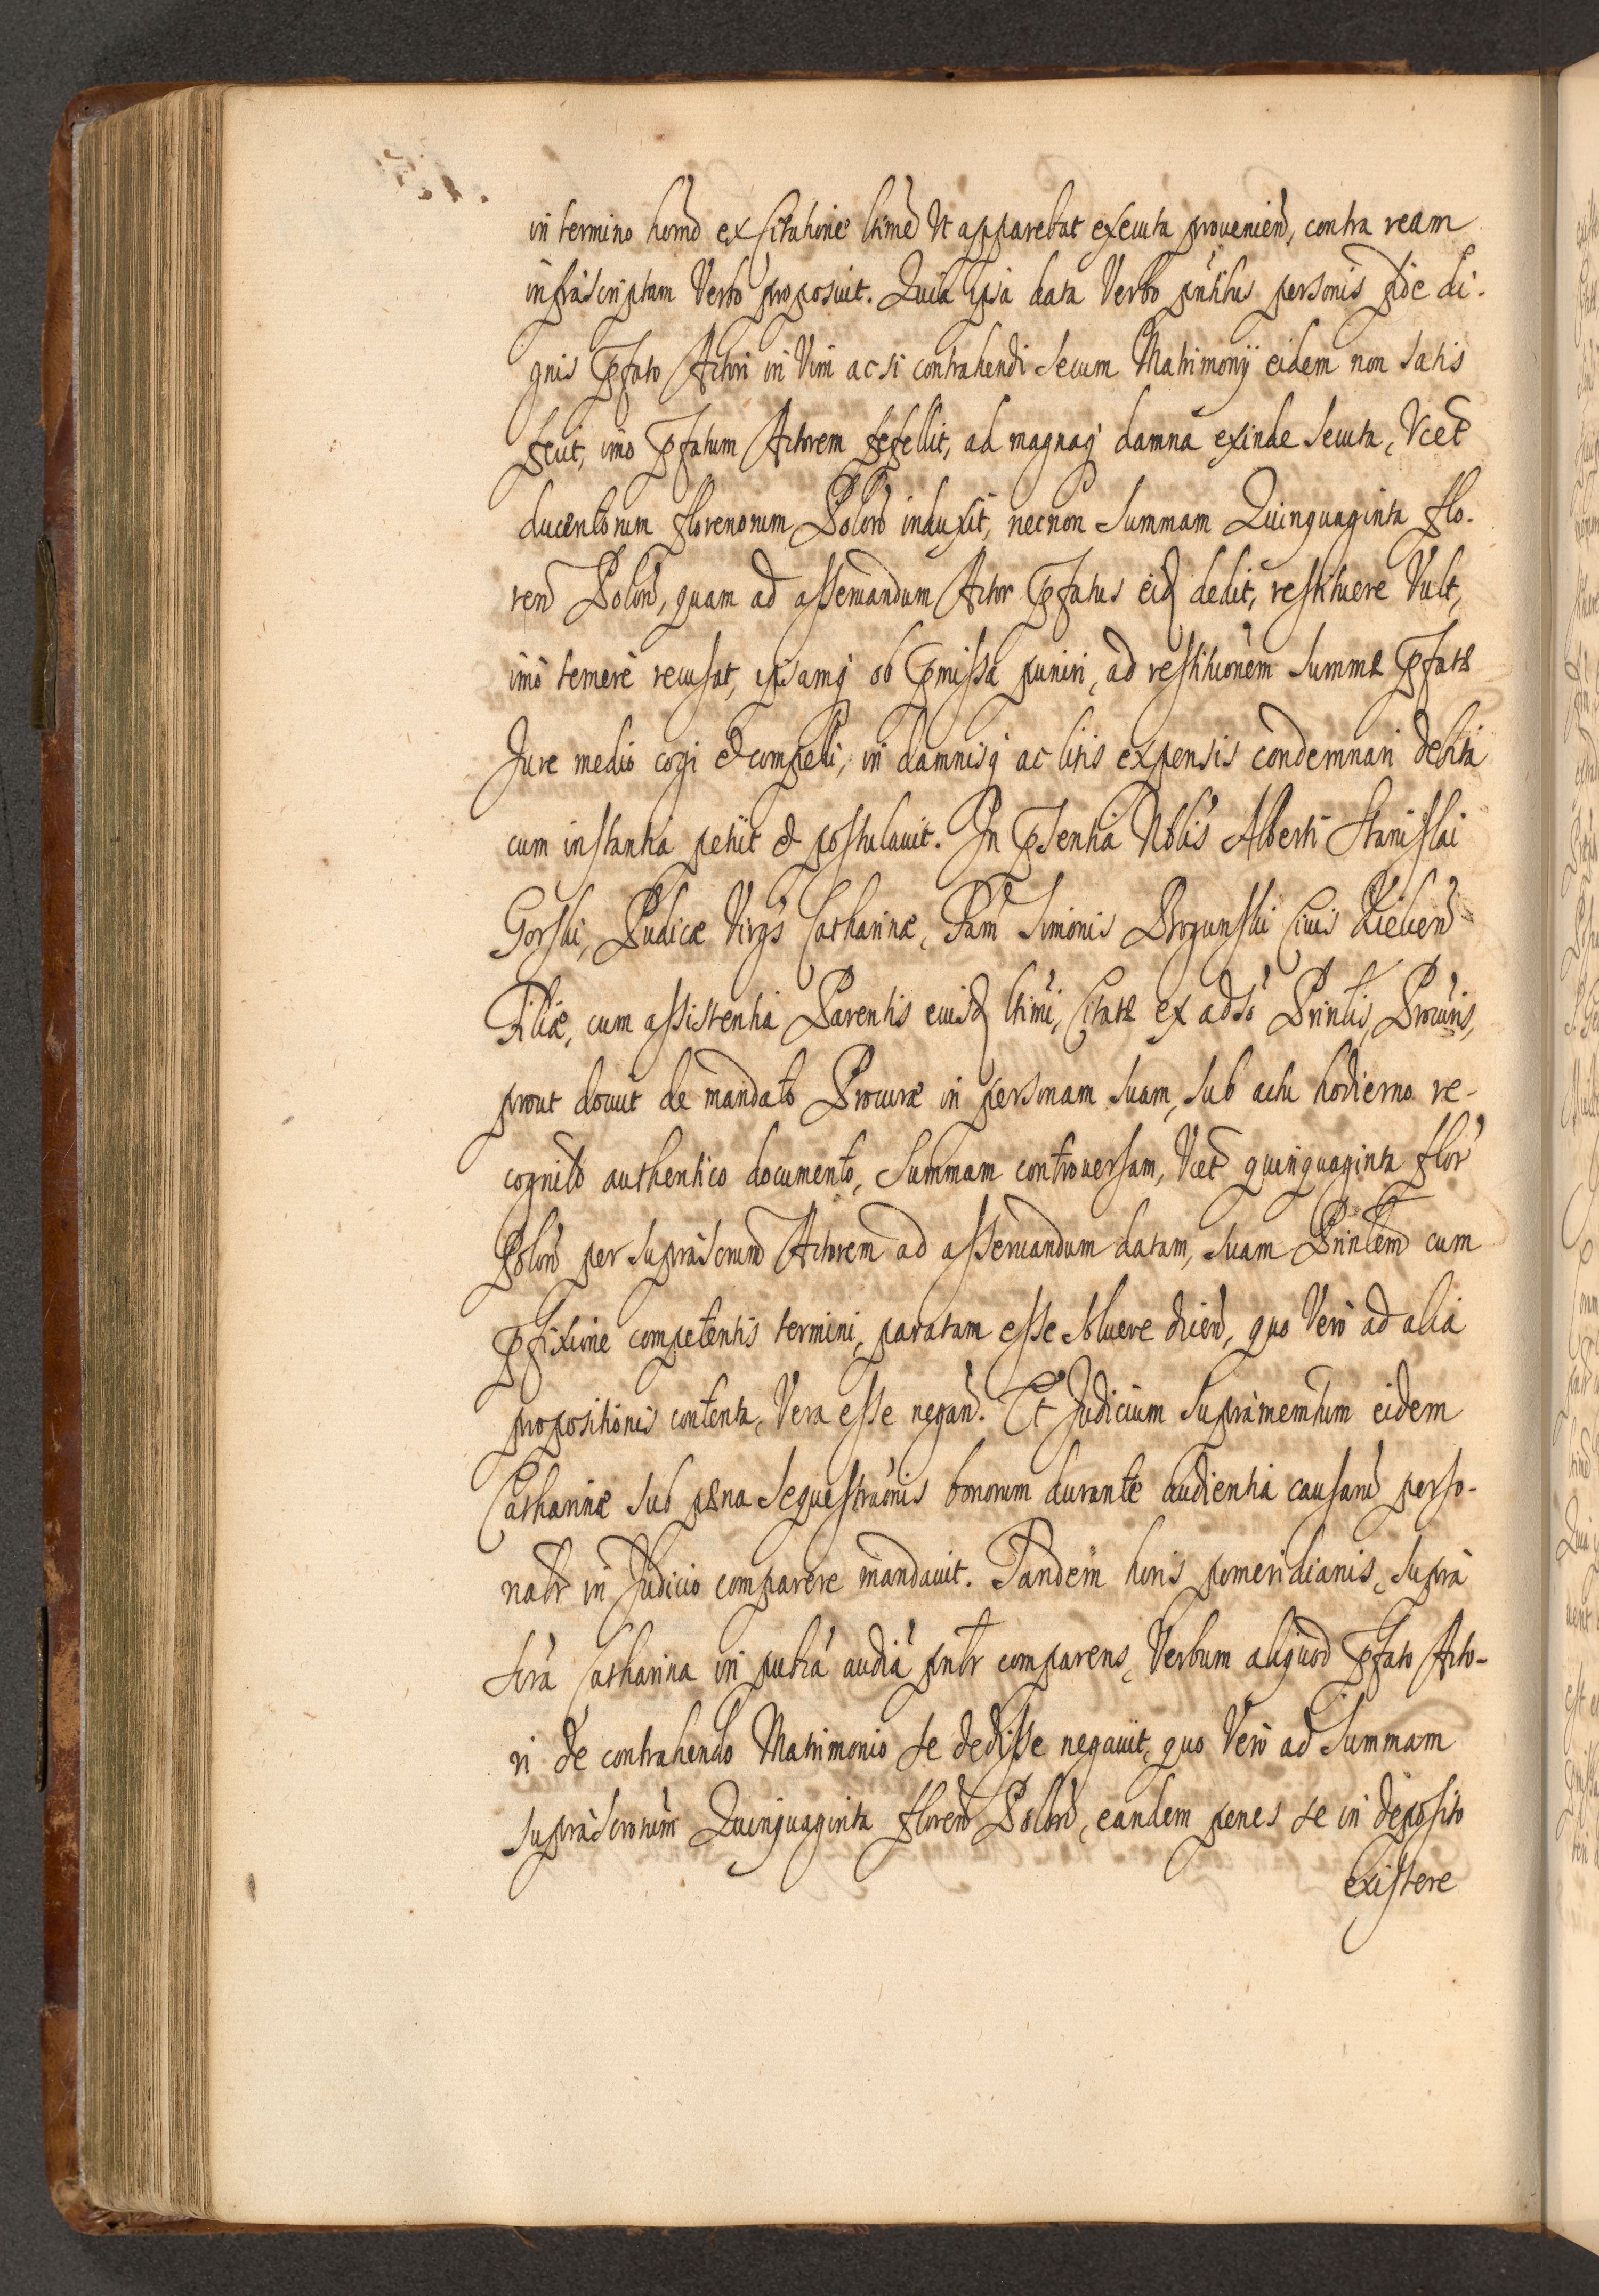 in termino horno ex Citatione ltime Ut apparebat executa provenien, contra ream
infrascriptam Verbo proposuit. Quia ipsa data Verbo pntibus personis fide di-
gnis Pfato Actori in Vim ac si contrahendi secum Matrimonij eidem non satis
fecit, imo Pfatum Actorem fefellit, ad magnaq damna exinde secuta, Vcet
ducentorum florenorum Polon induxit, necnon Summam Quinquaginta flo-
ren Polon, quam ad asservandum Actor Pfatus eid dedit, restituere Vult,
imo temere recusat, ipsamq ob Pmissa puniri, ad restituonem summæ Pfatæ
Jure medio cogi et compelli, in damnisq ac litis expensis condemnari debita
cum instantia petiit et postulavit. In Psentia Nobis Alberti Stanislai
Gorski, Pudicæ Virgs Catharinæ, Fam Simonis Brogunski Civis Kielcen
Filiæ, cum assistentia Parentis eiusd ltimi, Citatæ ex adso Prinlis, Procuris,
prout docuit de mandato Procuræ in personam suam, sub actu hodierno re-
cognito authentico documento, Summam controversam, Vcet quinquaginta flor
Polon per suprascrum Actorem ad asservandum datam, suam Prinlem cum
Pfixione competentis termini, paratam esse solvere dicen, quo Vero ad alia
propositionis contenta, Vera esse negan. Et Judicium supramemtum eidem
Catharinæ sub pæna sequestraonis bonorum durante audientia causarum perso-
nalr in Judicio comparere mandavit. Tandem horis pomeridianis, supra
scra Catharina in publca audia pnlr comparens, Verbum aliquod Pfato Acto-
ri de contrahendo Matrimonio se dedisse negavit, quo Vero ad Summam
suprascrorum Quinquaginta floren Polon, eandem penes se in deposito
existere